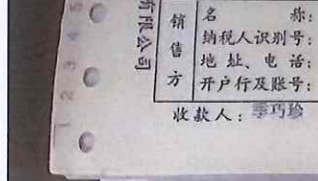 有限公司
销售方
名 称:
纳税人识别号:
地 址、电 话:
开户行及账号:
收款人: 季巧珍